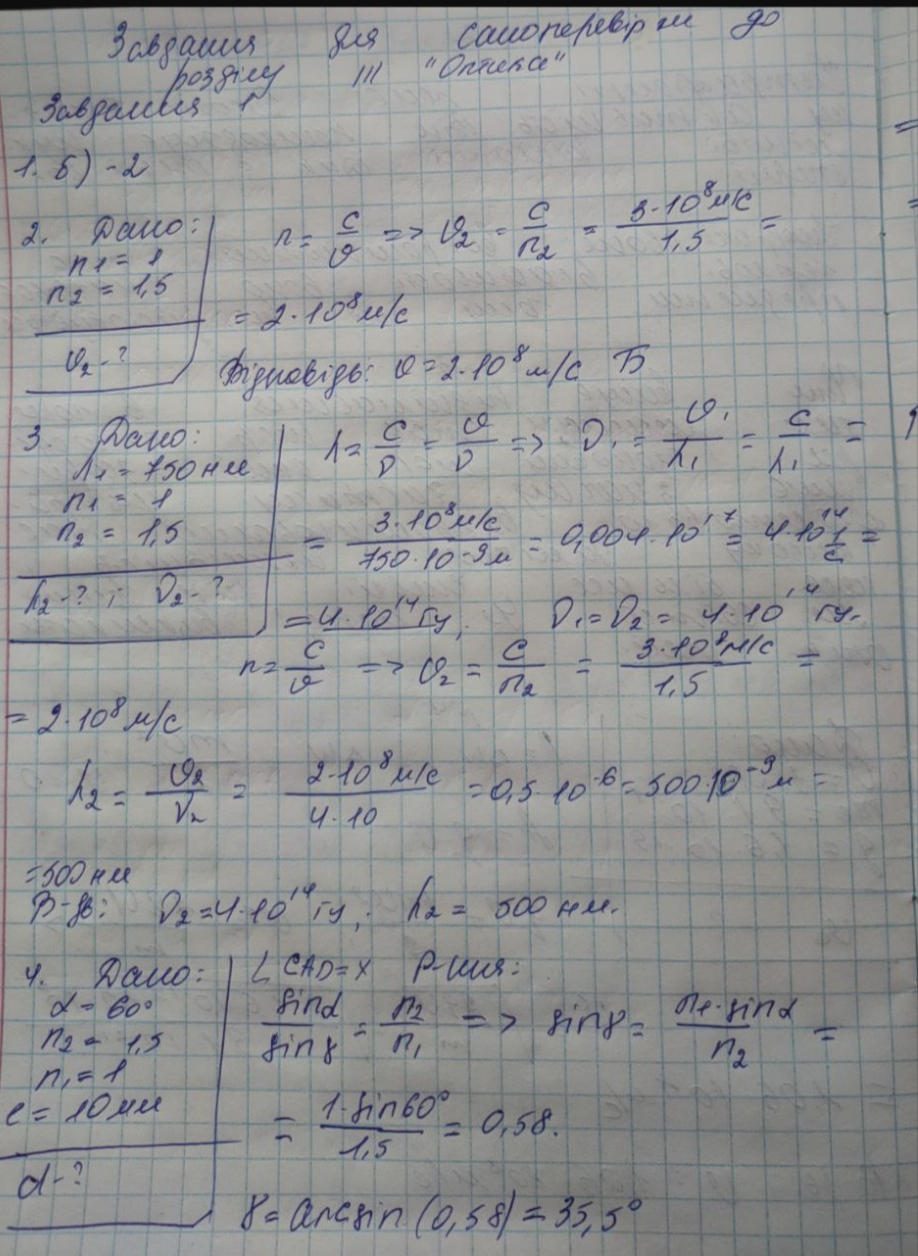 Завдання для самоперевірки до
розділу III "Оптика"
Завдання 1
1. Б) - 2
2. Дано:
n1 = 1
n2 = 1,5
υ2 - ?
n = c/υ => υ2 = c/n2 = 3·10⁸ м/с / 1,5 =
= 2·10⁸ м/с
Відповідь: υ = 2·10⁸ м/с Б
3. Дано:
λ1 = 750 нм
n1 = 1
n2 = 1,5
λ2 - ? ; ν2 - ?
λ = c/ν = υ/ν => ν1 = υ1/λ1 = c/λ1 =
= 3·10⁸ м/с / 750·10⁻⁹ м = 0,004·10¹⁷ = 4·10¹⁴ 1/с =
= 4·10¹⁴ Гц; ν1 = ν2 = 4·10¹⁴ Гц.
n = c/υ => υ2 = c/n2 = 3·10⁸ м/с / 1,5 =
= 2·10⁸ м/с
λ2 = υ2/ν2 = 2·10⁸ м/с / 4·10 = 0,5·10⁻⁶ = 500·10⁻⁹ м =
= 500 нм
В-дь: ν2 = 4·10¹⁴ Гц; λ2 = 500 нм.
4. Дано:
α = 60°
n2 = 1,5
n1 = 1
l = 10 мм
d - ?
∠CAD = x Р-ння:
sinα/sinγ = n2/n1 => sinγ = n1·sinα/n2 =
= 1·sin60°/1,5 = 0,58.
γ = arcsin(0,58) = 35,5°